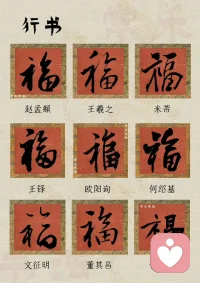 行书
福 福 福
赵孟頫 王羲之 米芾
福 福 福
王铎 欧阳询 何绍基
福 福 福
文征明 董其昌